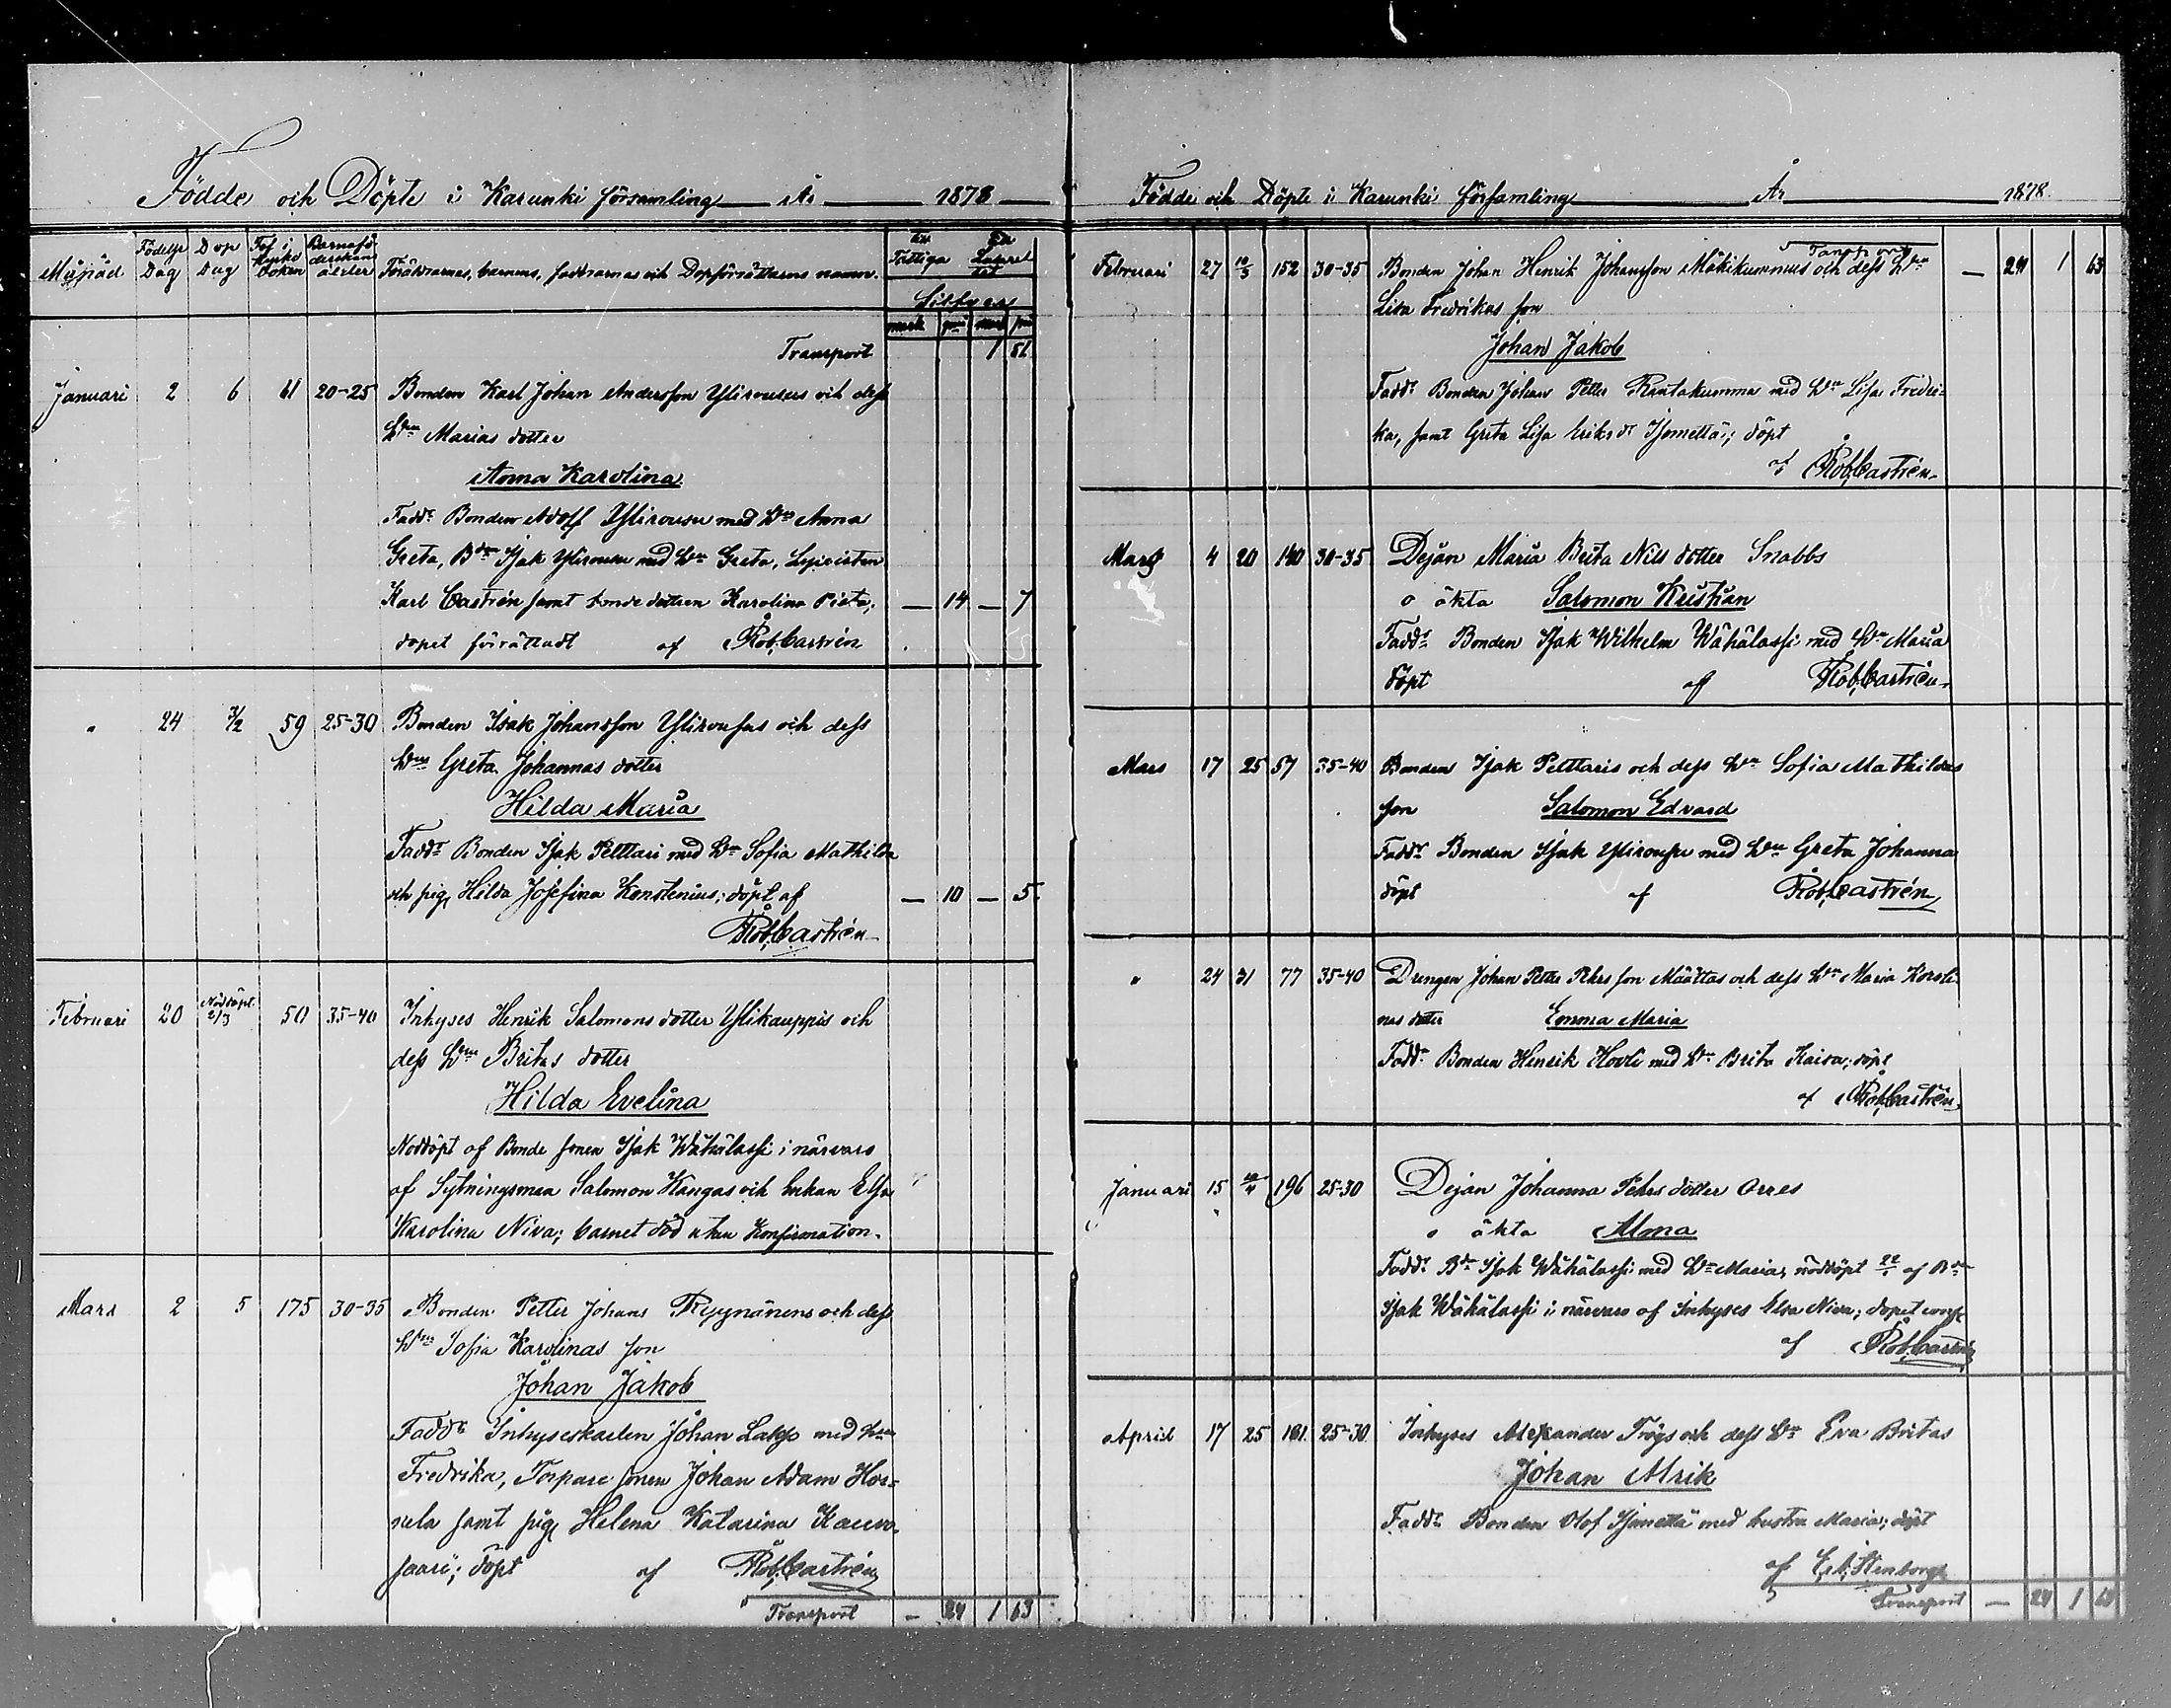 Födde och Döpte i Karunki församling År 1878
Månad Födelse Dag Dop Dag Fol. i Kyrko boken Barnaföderskans ålder Föräldrarnas, barnens, faddrarnas och Dopförrättarens namn. Fattiga Lazarettet
Silfver
mark pni mark pni
Transport 1 51
Januari 2 6 61 20-25 Bonden Karl Johan Andersson Ylirousus och dess
Hru Marias dotter
Anna Karolina
Faddr Bonden Adolf Ylirousu med Hru Anna
Greta, Bdn Isak Ylirousu med Hru Greta,
Karl Castrén samt bondedottren Karolina Pieta, — 14 — 7
dopet förrättadt af Rob. Castrén
" 24 3/2 59 25-30 Bonden Isak Johansson Ylirousus och dess
Hru Greta Johannas dotter
Hilda Maria
Faddr Bonden Isak Pelttari med Hru Sofia Mathilda
och pig. Hilda Josefina Konstenius; döpt af — 10 — 5
Rob. Castrén
Februari 20 Nöddöpt 2/3 50 35-40 Inhyses Henrik Salomons dotter Ylikauppis och
dess Hru Britas dotter
Hilda Evelina
Nöddöpt af Bonde sonen Isak Wähälassi i närvaro
af Sytningsman Salomon Kangas och Enkan Elsa
Karolina Niva; barnet död utan Konfirmation.
Mars 2 5 175 30-35 Bonden Petter Johans Ryynänens och dess
Hru Sofia Karolinas son
Johan Jakob
Faddr Inhyseskarlen Johan Lakso med Hru
Fredrika, Torpare sonen Johan Adam Hor=
nela samt pig. Helena Katarina Kauvo-
saari; döpt af Rob. Castrén
Transport — 24 1 63
Födde och Döpte i Karunki församling År 1878.
Transport
Februari 27 10/3 152 30-35 Bonden Johan Henrik Johansson Mäkikummus och dess Hru — 24 1 63
Lisa Fredrikas son
Johan Jakob
Faddr Bonden Johan Petter Rantakumma med Hru Lisa Fredri=
ka, samt Greta Lisa Eriksdr Isometsä; döpt
af Rob. Castrén
Mars 4 20 140 30-35 Dejan Maria Brita Nils dotter Snabbs
o äkta Salomon Kristian
Faddr Bonden Isak Wilhelm Wähälassi med Hru Maria
döpt af Rob. Castrén
Mars 17 25 57 35-40 Bonden Isak Pelttaris och dess Hru Sofia Mathildas
son Salomon Edvard
Faddr Bonden Isak Ylirousu med Hru Greta Johanna
döpt af Rob. Castrén
" 24 31 77 35-40 Drengen Johan Petter Pehrs son Määttas och dess Hru Maria Karoli-
nas dotter Emma Maria
Faddr Bonden Henrik Hooli med Hru Brita Kaisa; döpt
af Rob. Castrén
Januari 15 196 25-30 Dejan Johanna Pehrs dotter Orres
o äkta Alma
Faddr Bdn Isak Wähälassi med Hru Maria, nöddöpt 22/1 af Bdn
Isak Wähälassi i närvaro af Inhyses Elsa Niva; dopet conf.
af Rob. Castrén
April 17 25 161 25-30 Inhyses Alexander Frögs och dess Hru Eva Britas
Johan Alrik
Faddr Bonden Olof Isometsä med hustru Maria; döpt
af Stenborg
Transport — 24 1 63